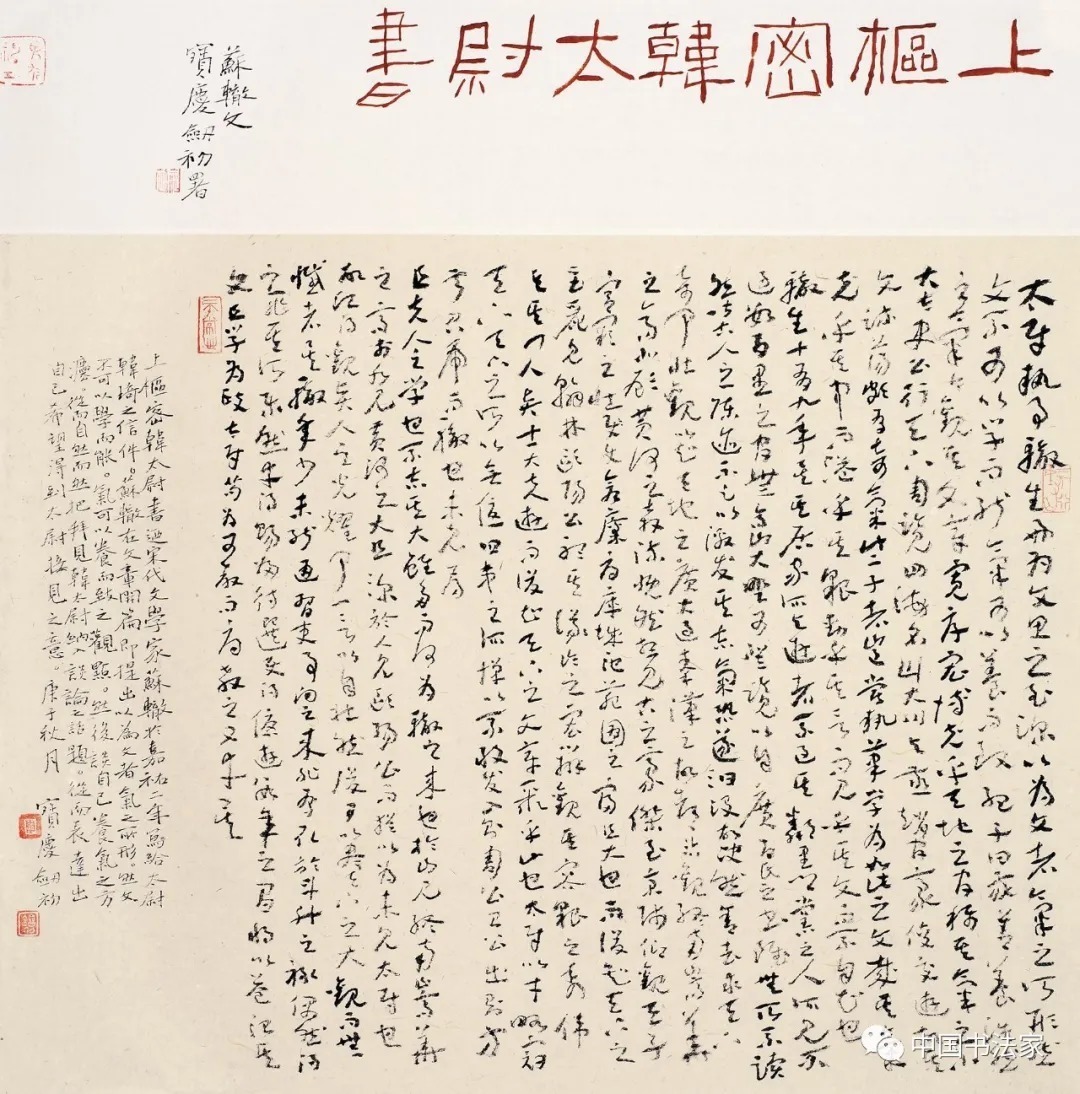 上樞密韓太尉書
蘇轍文
寶慶劒初署
太尉執事轍生好為文思之至深以為文者氣之所形然
文不可以學而能氣可以養而致孟子曰我善養吾浩然
之氣今觀其文章寬厚宏博充乎天地之間稱其氣之小
大太史公行天下周覽四海名山大川與燕趙間豪俊交遊故其
文疏蕩頗有奇氣此二子者豈嘗執筆學為如此之文哉其氣
充乎其中而溢乎其貌動乎其言而見乎其文而不自知也
轍生十有九年矣其居家所與遊者不過其鄰里鄉黨之人所見不
過數百里之間無高山大野可登覽以自廣百氏之書雖無所不讀
然皆古人之陳迹不足以激發其志氣恐遂汩沒故決然舍去求天下
奇聞壯觀以知天地之廣大過秦漢之故都恣觀終南嵩華
之高北顧黃河之奔流慨然想見古之豪傑至京師仰觀天子
宮闕之壯與倉廩府庫城池苑囿之富且大也而後知天下之
巨麗見翰林歐陽公聽其議論之宏辯觀其容貌之秀偉
與其門人賢士大夫遊而後知天下之文章聚乎此也太尉以才略冠
天下天下之所以無憂四夷之所憚以不敢發入則周公召公出則方
叔召虎而轍也未之見焉
且夫人之學也不志其大雖多而何為轍之來也於山見終南嵩華
之高於水見黃河之大且深於人見歐陽公而猶以為未見太尉也
故願得觀賢人之光耀聞一言以自壯然後可以盡天下之大觀而無
憾者矣轍年少未能通習吏事嚮之來非有取於斗升之祿偶然得
之非其所樂然幸得賜歸待選使得優遊數年之間將以益治其
文且學為政太尉苟以為可教而辱教之又幸矣
上樞密韓太尉書迺宋代文學家蘇轍於嘉祐二年寫給太尉
韓琦之信件。蘇轍在文章開篇即提出以為文者氣之所形。然文
不可以學而能。氣可以養而致之觀點。然後談自己養氣之方
灋。從而自然而然把拜見韓太尉納入談論之話題。從而表達出
自己希望得到太尉接見之意。庚子秋月
寶慶劒初
中国书法家